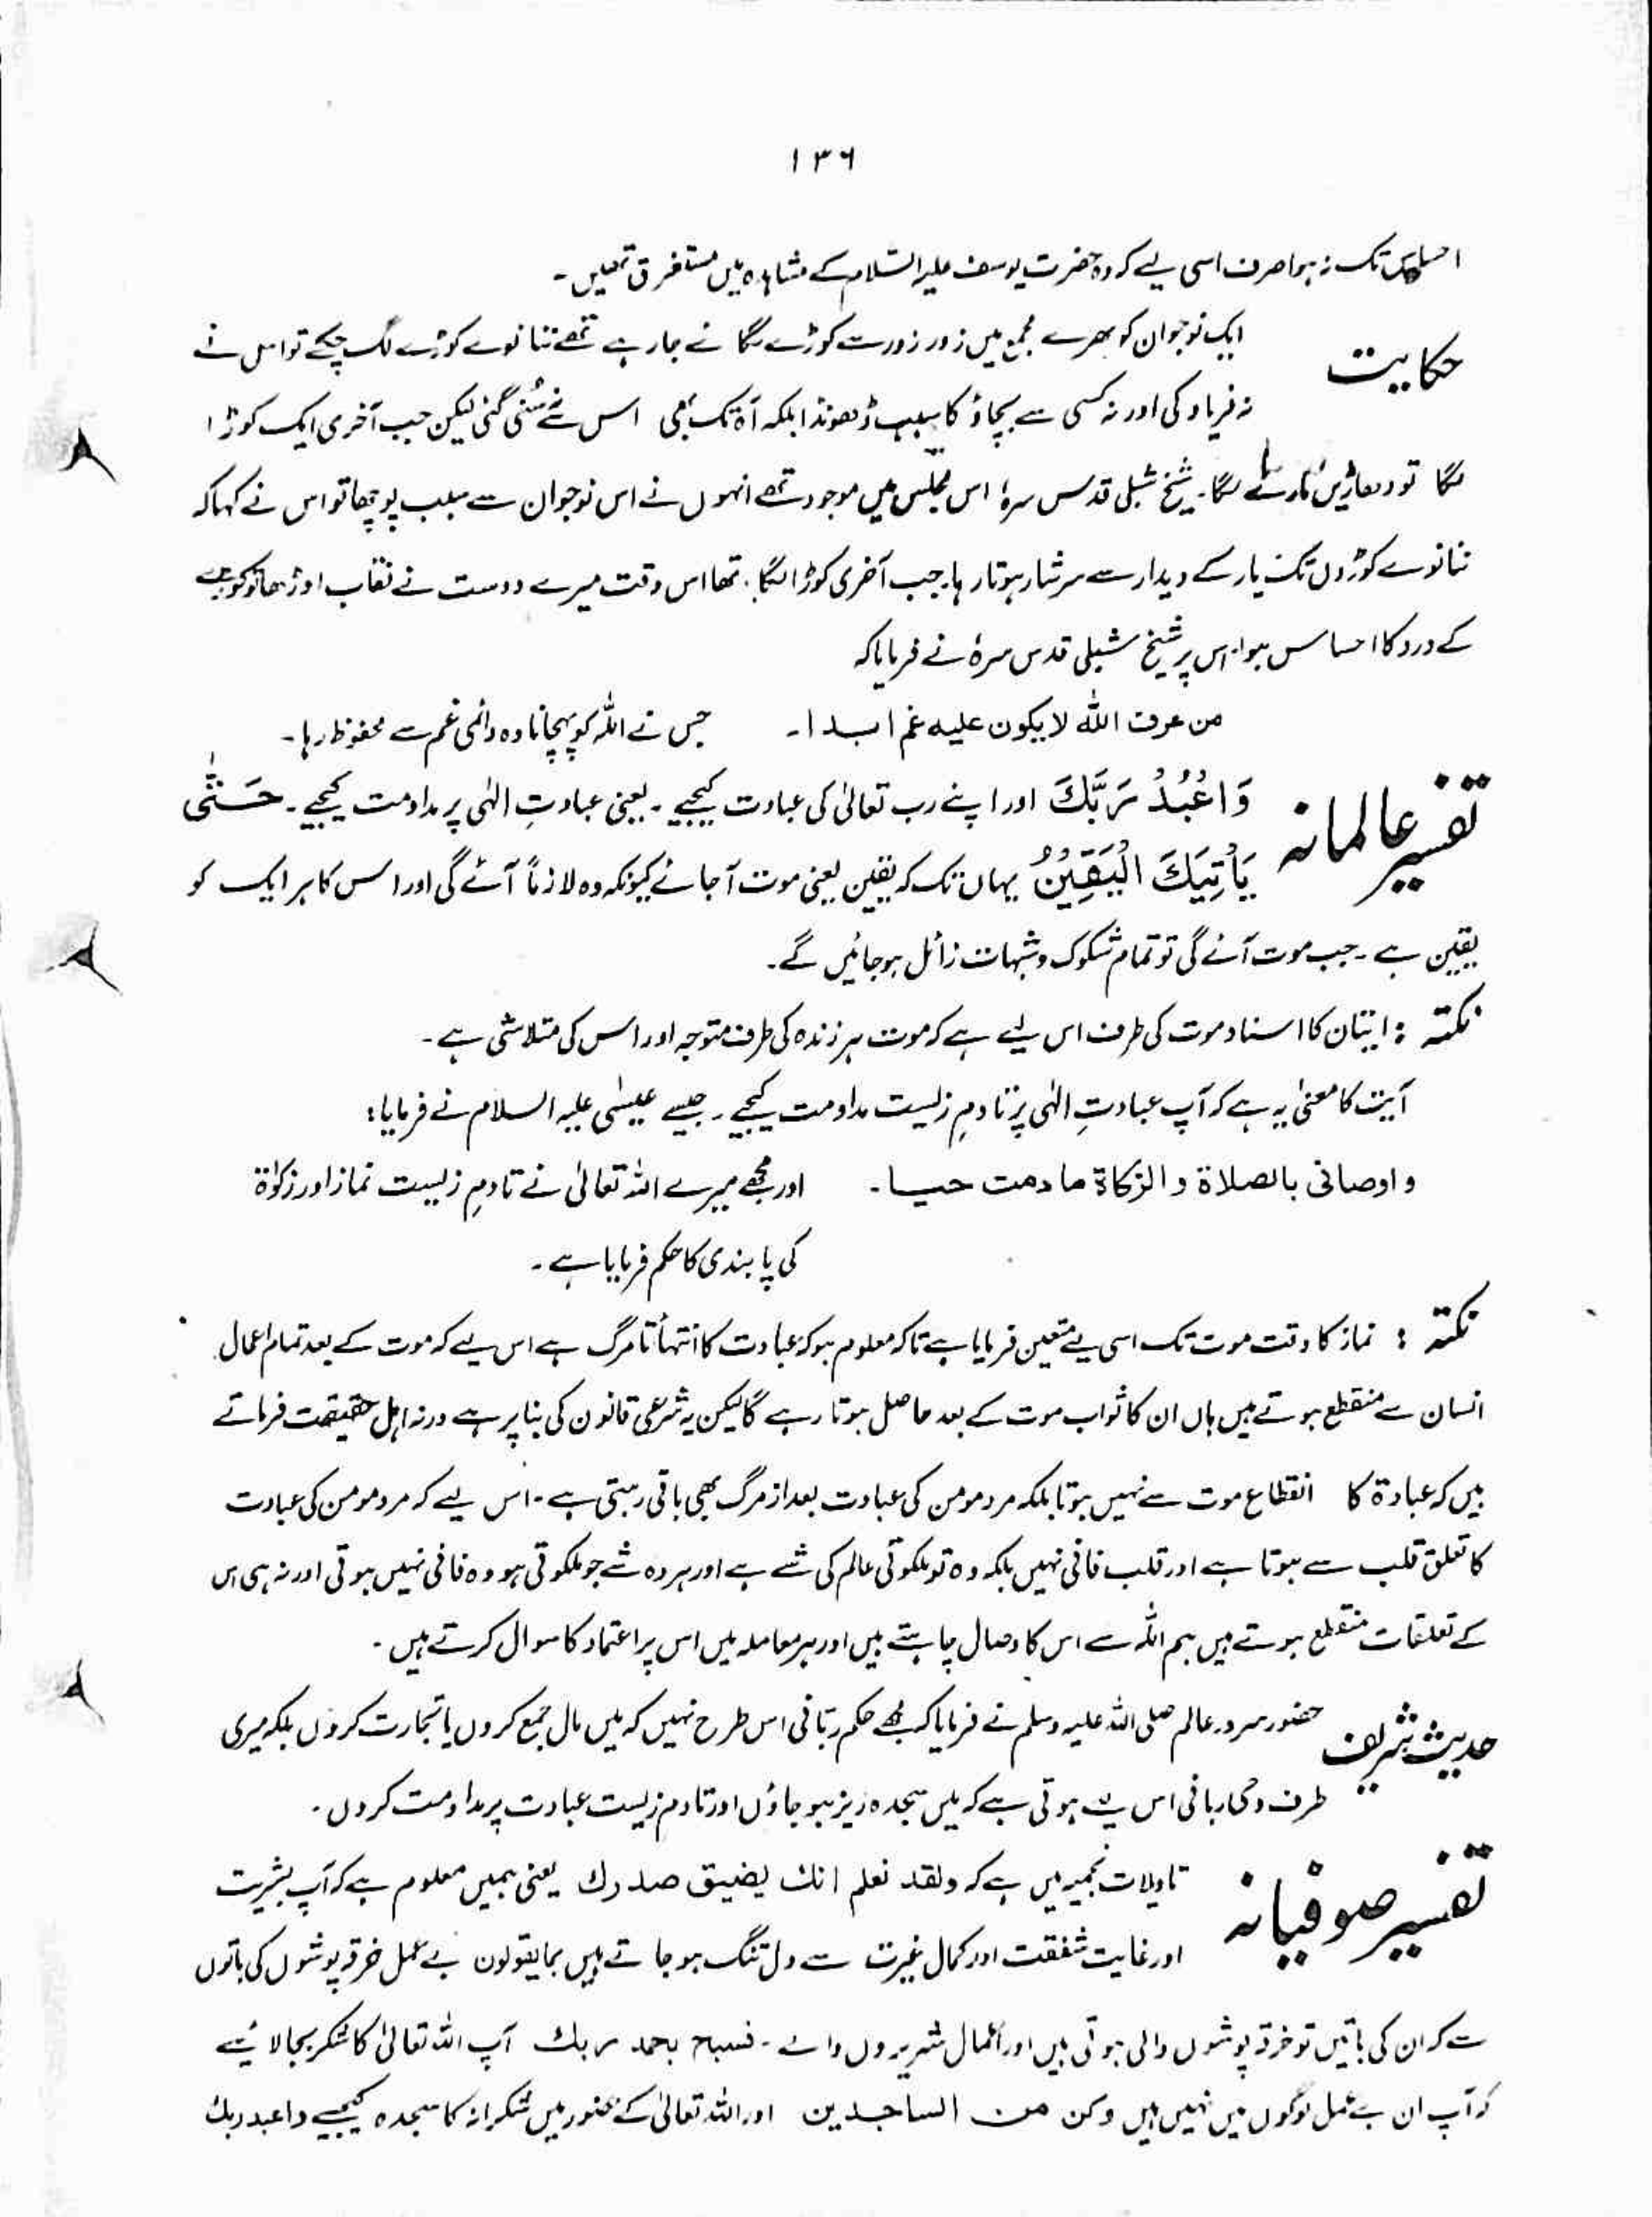 ۱۳۶
احساس تک نہ ہوا صرف اسی لیے کہ وہ حضرت یوسف علیہ السّلام کے مشاہدہ میں مستغرق تھیں۔
حکایت ایک نوجوان کو بھرے مجمع میں زور زور سے کوڑے لگائے جا رہے تھے ننانوے کوڑے لگ چکے تو اس نے
نہ فریاد کی اور نہ کسی سے بچاؤ کا سبب ڈھونڈا بلکہ آہ تک بھی اس سے نہ سُنی گئی لیکن جب آخری ایک کوڑا
لگا تو دھاڑیں مارنے لگا۔ شیخ شبلی قدس سرہٗ اس مجلس میں موجود تھے انہوں نے اس نوجوان سے سبب پوچھا تو اس نے کہا کہ
ننانوے کوڑوں تک یار کے دیدار سے سرشار ہوتا رہا۔ جب آخری کوڑا لگا تھا اس وقت میرے دوست نے نقاب اوڑھا تو کوڑے
کے درد کا احساس ہوا۔ اس پر شیخ شبلی قدس سرہٗ نے فرمایا کہ
من عرف اللہ لا یکون علیہ غم ابدا۔ جس نے اللہ کو پہچانا وہ دائمی غم سے محفوظ رہا۔
تفسیر عالمانہ وَاعْبُدْ رَبَّكَ اور اپنے رب تعالیٰ کی عبادت کیجیے۔ یعنی عبادتِ الٰہی پر مداومت کیجیے۔ حَتّٰی
یَاْتِیَكَ الْیَقِیْنُ یہاں تک کہ یقین یعنی موت آجائے کیونکہ وہ لازماً آئے گی اور اس کا ہر ایک کو
یقین ہے۔ جب موت آئے گی تو تمام شکوک و شبہات زائل ہو جائیں گے۔
نکتہ : اتیان کا اسناد موت کی طرف اس لیے ہے کہ موت ہر زندہ کی طرف متوجہ اور اس کی متلاشی ہے۔
آیت کا معنیٰ یہ ہے کہ آپ عبادتِ الٰہی پر تادمِ زلیست مداومت کیجیے۔ جیسے عیسٰی علیہ السلام نے فرمایا؛
و اوصانی بالصلاة و الزکاة ما دمت حیا۔ اور مجھے میرے اللہ تعالیٰ نے تادمِ زلیست نماز اور زکوٰۃ
کی پابندی کا حکم فرمایا ہے۔
نکتہ : نماز کا وقت موت تک اسی لیے متعین فرمایا ہے تاکہ معلوم ہو کہ عبادت کا انتہأ تا مرگ ہے اس لیے کہ موت کے بعد تمام اعمال
انسان سے منقطع ہوتے ہیں ہاں ان کا ثواب موت کے بعد حاصل ہوتا رہے گا لیکن یہ شرعی قانون کی بنا پر ہے ورنہ اہل حقیقت فرماتے
ہیں کہ عبادۃ کا انقطاع موت سے نہیں ہوتا بلکہ مرد مومن کی عبادت بعد از مرگ بھی باقی رہتی ہے۔ اس لیے کہ مرد مومن کی عبادت
کا تعلق قلب سے ہوتا ہے اور قلب فانی نہیں بلکہ وہ تو ملکوتی عالم کی شے ہے اور ہر وہ شے جو ملکوتی ہو وہ فانی نہیں ہوتی اور نہ ہی اس
کے تعلقات منقطع ہوتے ہیں ہم اللہ سے اس کا وصال چاہتے ہیں اور ہر معاملہ میں اس پر اعتماد کا سوال کرتے ہیں۔
حدیث شریف حضور سرور عالم صلی اللہ علیہ وسلم نے فرمایا کہ مجھے حکم ربّانی اس طرح نہیں کہ میں مال جمع کروں یا تجارت کروں بلکہ میری
طرف وحی ربانی اس لیے ہوتی ہے کہ میں سجدہ ریز ہو جاؤں اور تادم زلیست عبادت پر مداومت کروں۔
تفسیر صوفیانہ تاویلات نجمیہ میں ہے کہ ولقد نعلم انك یضیق صدرك یعنی ہمیں معلوم ہے کہ آپ بشریت
اور غایت شفقت اور کمال غیرت سے دل تنگ ہو جاتے ہیں بما یقولون بے عمل خرقہ پوشوں کی باتوں
سے کہ ان کی باتیں تو خرقہ پوشوں والی ہوتی ہیں اور اعمال شریروں والے۔ فسبح بحمد ربك آپ اللہ تعالیٰ کا شکر بجا لائیے
کہ آپ ان بے عمل لوگوں میں نہیں ہیں وکن من الساجدین اور اللہ تعالیٰ کے حضور میں شکرانہ کا سجدہ کیجیے واعبد ربك